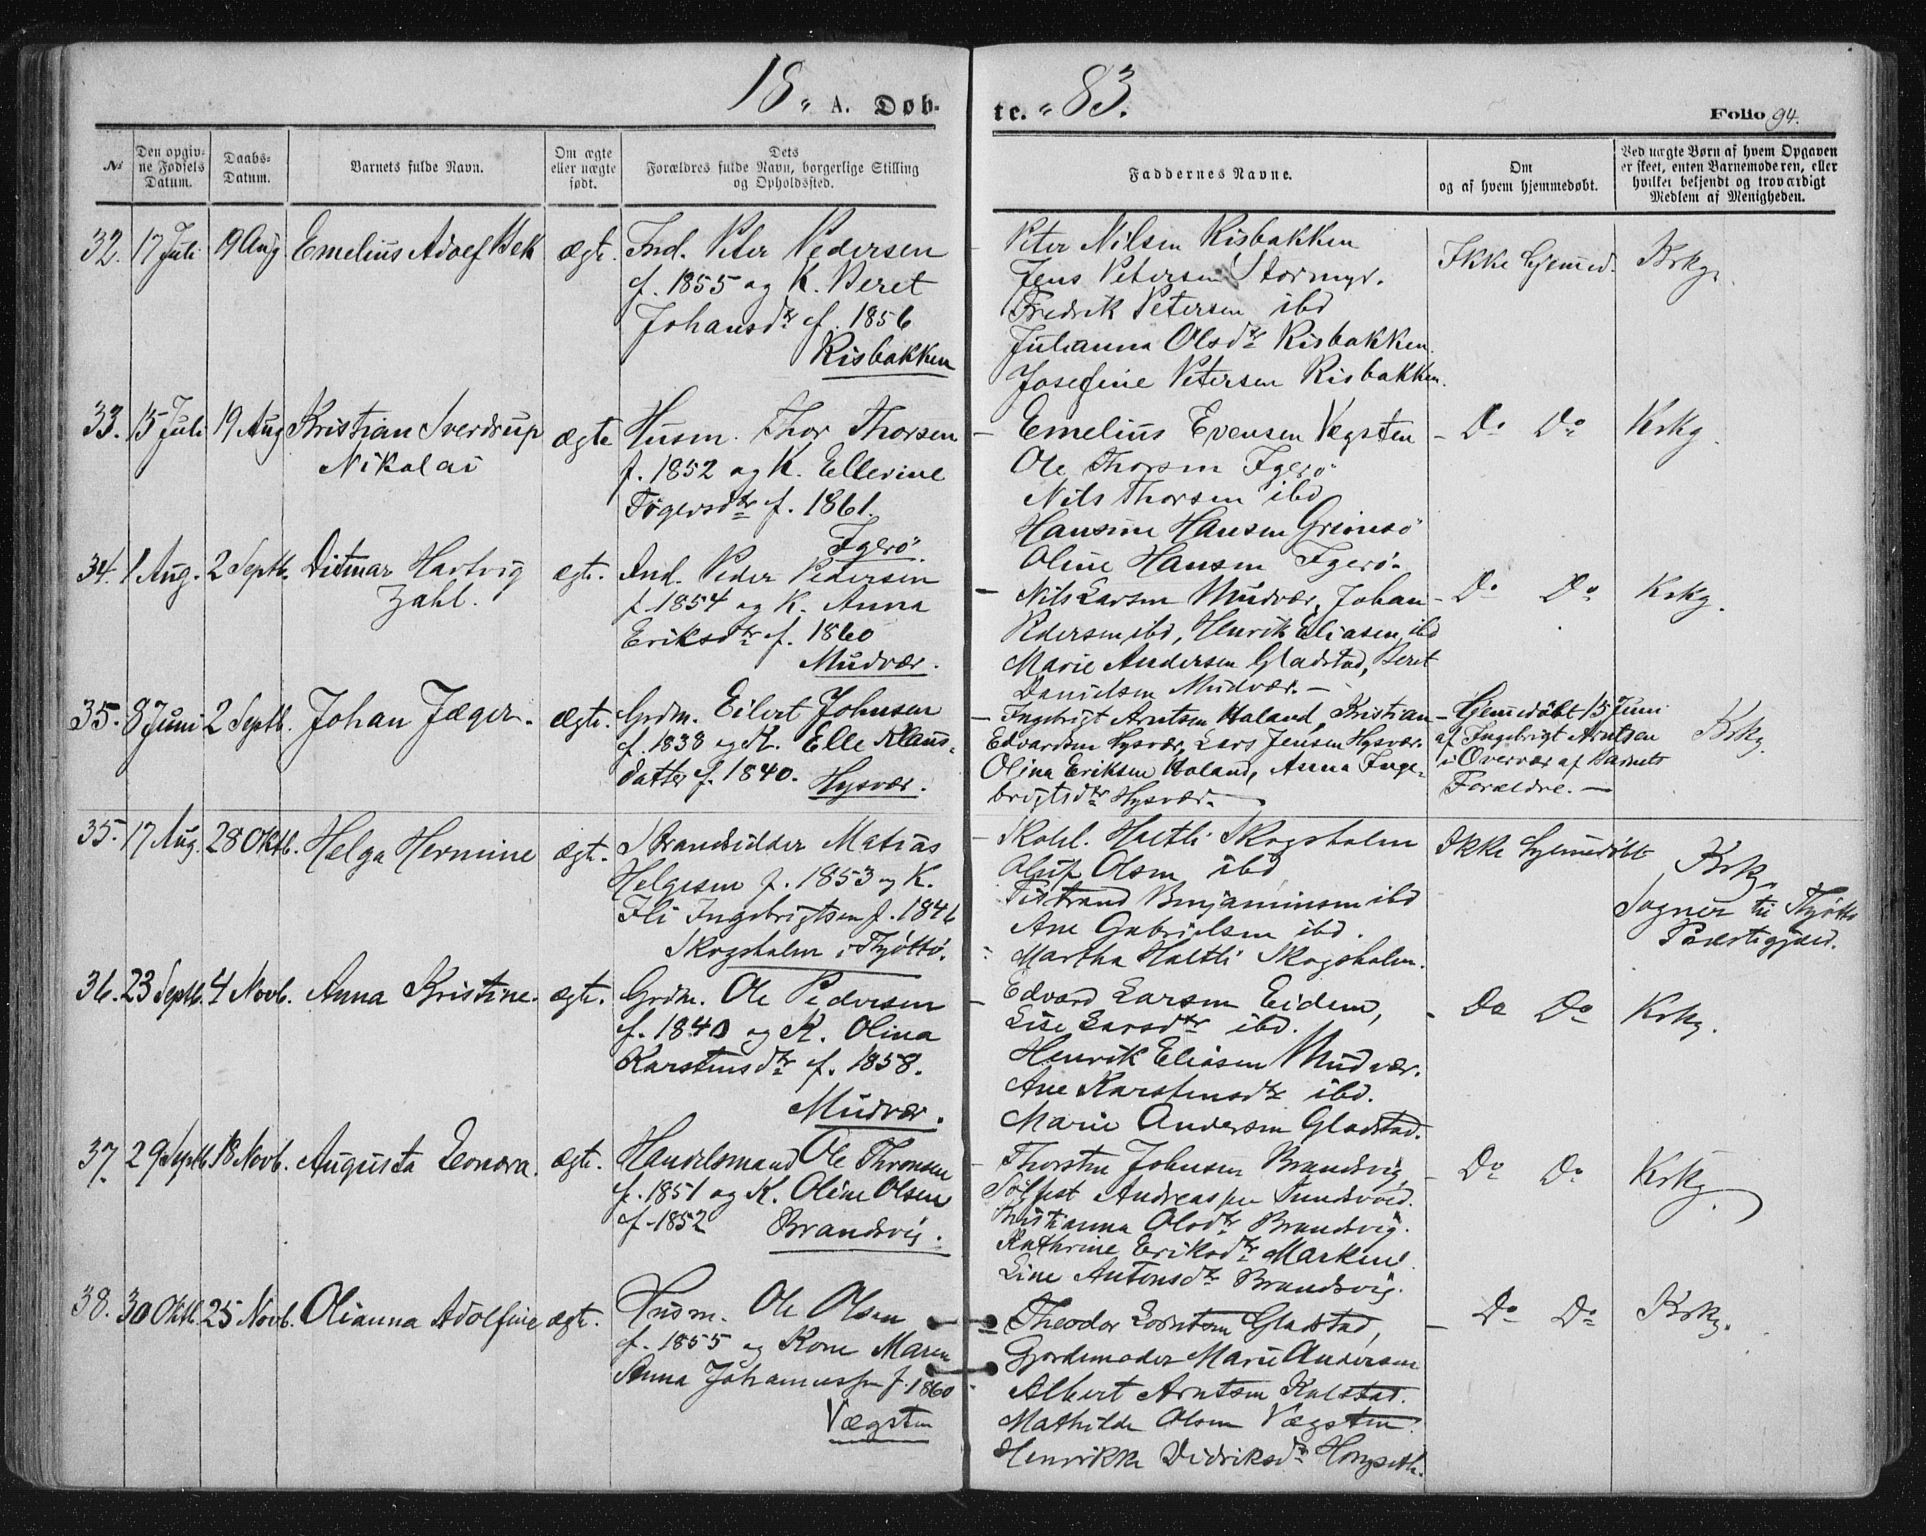 18 " A. Døb-
te. " 83.
Folio 94.
№
Den opgiv-
ne Fødsels
Datum.
Daabs-
Datum.
Barnets fulde Navn.
Om ægte
eller uægte
født.
Dets
Forældres fulde Navn, borgerlige Stilling
og Opholdssted.
Faddernes Navne.
Om
og af hvem hjemmedøbt.
Ved uægte Børn af hvem Opgaven
er skeet, enten Barnemoderen, eller
hvilket bekjendt og troværdigt
Medlem af Menigheden.
32. 17 Juli 19 Aug Emelius Adolf Bek ægte. Ind. Peter Pedersen
f. 1855 og K. Beret
Johansdtr f. 1856
Risbakken
Peter Nilsen Risbakken
Jens Petersen Stormyr.
Fredrik Petersen ibd
Julianna Olsdtr Risbakken.
Josefine Petersen Risbakken.
Ikke hjemmed. Krkg.
33. 15 Juli 19 Aug Kristian Sverdrup
Nikolai
ægte Husm. Thor Thorsen
f. 1852 og K. Ellerine
Tøgersdtr f. 1861.
Igerø.
- Emelius Evensen Vegsten
Ole Thorsen Igerø
Nils Thorsen ibd
Hansine Hansen Grimsø
Oline Hansen Igerø.
- Do Do Krkg.
34. 1 Aug. 2 Septb. Ditmar Hartvig
Zahl.
ægte. Ind. Peder Pedersen
f. 1854 og K. Anna
Eriksdtr f. 1860
Mudvær.
- Nils Larsen Mudvær, Johan
Pedersen ibd, Henrik Eliasen ibd
Marie Andersen Gladstad, Beret
Danielsen Mudvær. -
- Do Do Krkg.
35. 8 Juni 2 Septb. Johan Jæger. ægte. Grdm. Eilert Johnsen
f. 1838 og K. Elle Klaus-
datter f. 1840. Hysvær.
- Ingebrigt Arntsen Haland, Kristian
Edvardsen Hysvær, Lars Jensen Hysvær.
Olina Eriksen Haland, Anna Inge-
brigtsdtr Hysvær.
- Hjemmedøbt 15 Juni
af Ingebrigt Arntsen
i Overvær af Barnets
Forældre. -
Krkg.
35. 17 Aug. 28 Oktb. Helga Hermine ægte. Strandsidder Matias
Helgesen f. 1853 og K.
Ili Ingebrigtsen f. 1846
Skogsholm i Tjøttø.
- Skohl. Holtli Skogsholm
Oluf Olsen ibd
Tistrand Benjaminsen ibd
Ane Gabrielsen ibd.
Martha Holtli Skogsholm.
Ikke hjemmedøbt Krkg.
Sogner til Tjøttø
Præstegjæld.
36. 23 Septb. 4 Novb. Anna Kristine. ægte. Grdm. Ole Pedersen
f. 1840 og K. Olina
Karstensdtr f. 1858.
Mudvær.
- Edvard Larsen Eidem,
Lise Larsdtr ibd.
Henrik Eliasen Mudvær.
Ane Karstensdtr ibd.
Marie Andersen Gladstad.
- Do Do Krkg.
37. 29 Septb 18 Novb. Augusta Leonora. ægte. Handelsmand Ole Thronsen
f. 1851 og K. Oline Olsen
f. 1852 Brandsvig.
- Thorsten Johnsen Brandsvig,
Sølfest Andreassen Sundsvoed.
Kristianna Olsdtr Brandsvig.
Kathrine Eriksdtr Markene
Line Antonsdtr Brandsvig.
- Do Do Krkg.
38. 30 Oktb. 25 Novb. Olianna Adolfine ægte. Husm. Ole Olsen
f. 1855 og Kone Maren
Anna Johannessen f. 1860
Vægsten
- Theodor Lorntsen Gladstad,
Gjordemoder Marie Andersen
Albert Arntsen Kalstad.
Mathilde Olsen Vægsten.
Henrikke Didriksdtr Hongseth.
- Do Do Krkg.